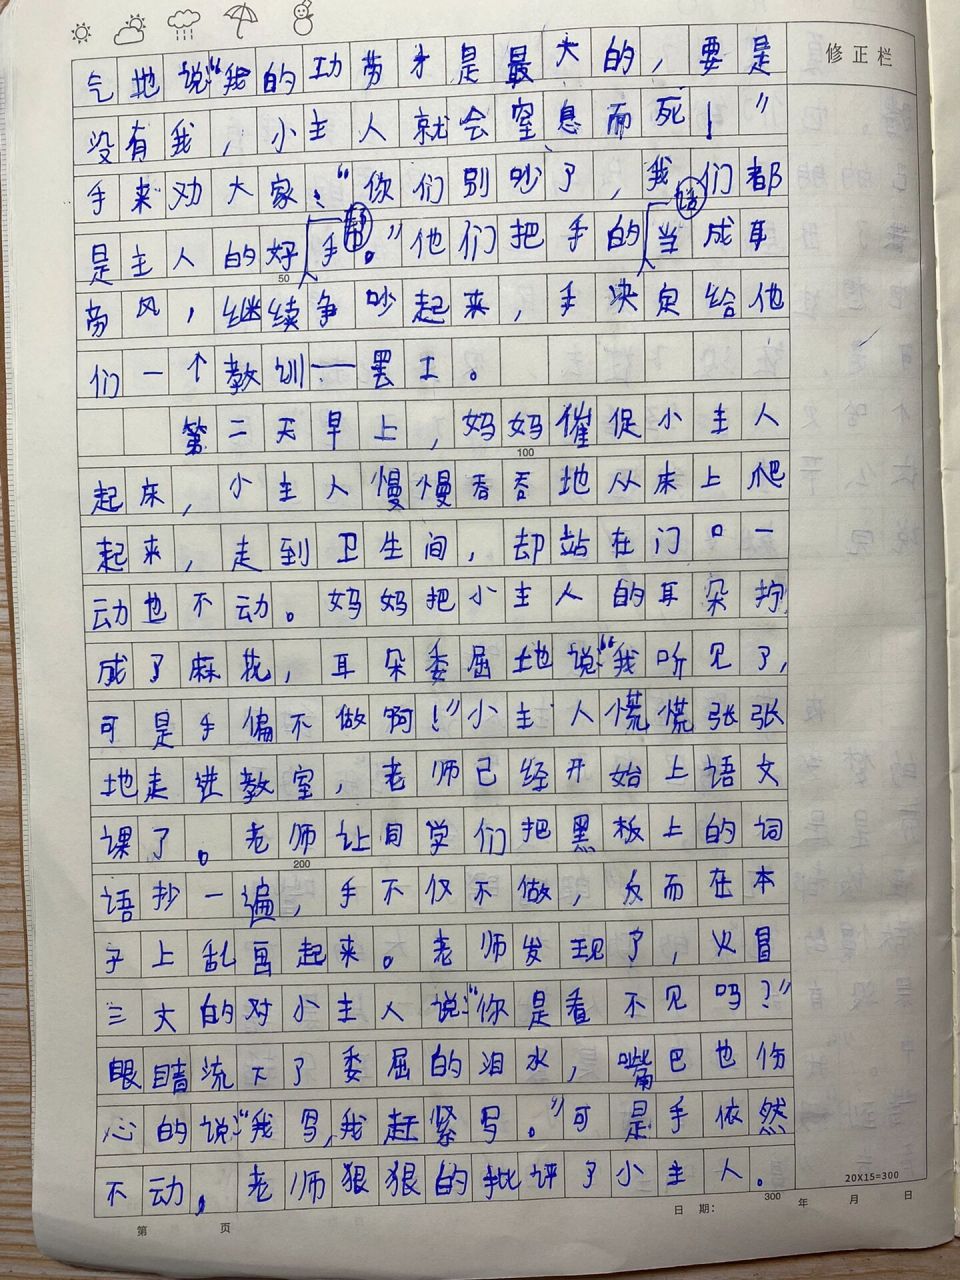 修正栏
气地说:“我的功劳才是最大的,要是
没有我,小主人就会窒息而死!”
手来劝大家:“你们别吵了,我们都
是主人的好帮手。”他们把手的话当成耳
旁风,继续争吵起来,手决定给他
们一个教训——罢工。
第二天早上,妈妈催促小主人
起床,小主人慢慢吞吞地从床上爬
起来,走到卫生间,却站在门口一
动也不动。妈妈把小主人的耳朵拧
成了麻花,耳朵委屈地说:“我听见了,
可是手偏不做啊!”小主人慌慌张张
地走进教室,老师已经开始上语文
课了。老师让同学们把黑板上的词
语抄一遍,手不仅不做,反而在本
子上乱画起来。老师发现了,火冒
三丈的对小主人说:“你是看不见吗?”
眼睛流下了委屈的泪水,嘴巴也伤
心的说:“我写,我赶紧写。”可是手依然
不动,老师狠狠的批评了小主人。
50
100
200
300
20X15=300
第 页
日期: 年 月 日